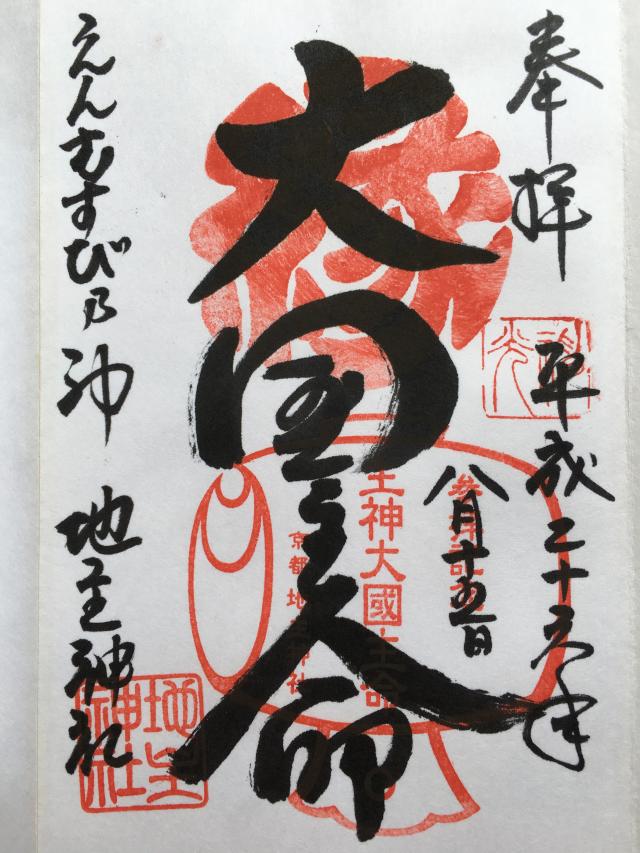 奉拝
平成二十六年
八月十五日
大国主命
主神大國主命
京都地主神社
えんむすび乃神 地主神社
地主神社